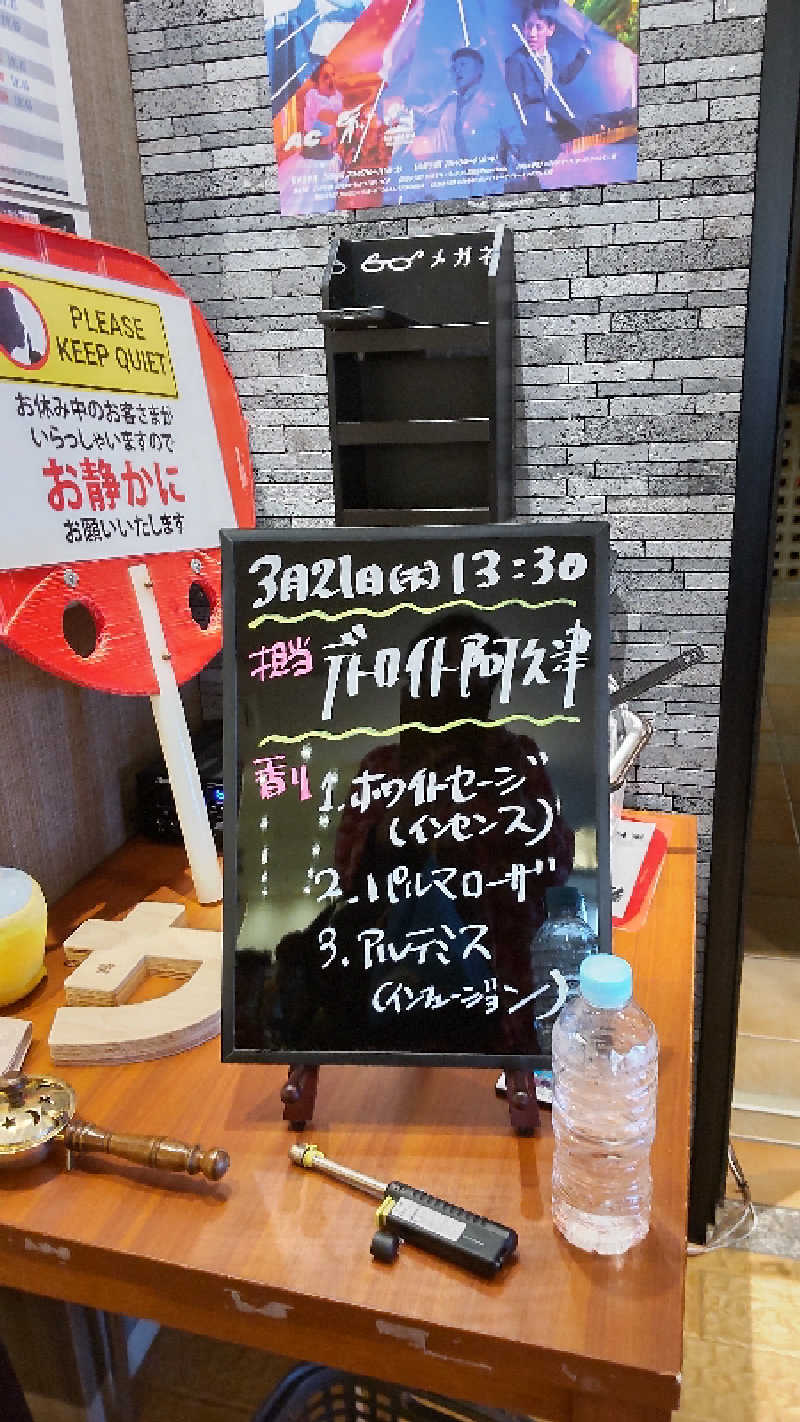 AC
メガネ
PLEASE
KEEP QUIET
お休み中のお客さまが
いらっしゃいますので
お静かに
お願いいたします
3月21日(木) 13:30
担当 デトロイト阿久津
香り 1. ホワイトセージ
(インセンス)
2. パルマローザ
3. アルテミス
(インフュージョン)